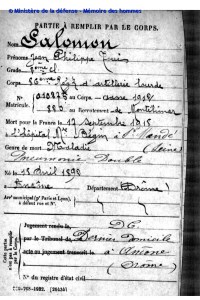 © Ministère de la défense - Mémoire des hommes
PARTIE À REMPLIR PAR LE CORPS.
Nom Salomon
Prénoms Jean Philippe Louis
Grade
Corps d'artillerie lourde
N° au Corps. — Classe 1918
Matricule. au Recrutement de Montélimar
Mort pour la France le 17 septembre 1918
à l'hôpital Bégin à St Mandé
(Seine)
Genre de mort Maladie
Pneumonie Double
Né le 15 Avril 1898
à Département Drôme
Arr' municipal (p' Paris et Lyon),
à défaut rue et N°.
Cette partie n'est pas à remplir par le Corps.
Jugement rendu le
par le Tribunal de Dernier Domicile
acte ou jugement transcrit le à
(Drôme)
N° du registre d'état civil